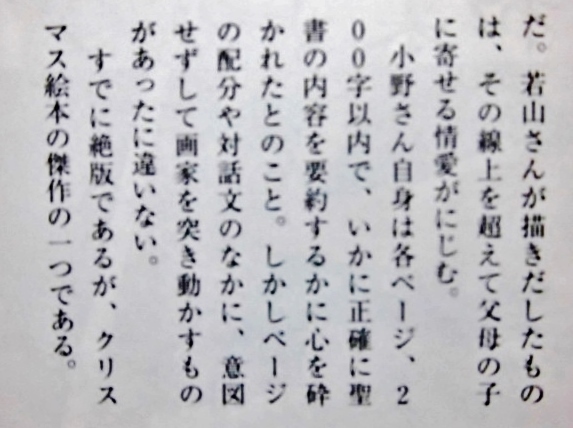 だ。若山さんが描きだしたもの
は、その線上を超えて父母の子
に寄せる情愛がにじむ。
小野さん自身は各ページ、2
00字以内で、いかに正確に聖
書の内容を要約するかに心を砕
かれたとのこと。しかしページ
の配分や対話文のなかに、意図
せずして画家を突き動かすもの
があったに違いない。
すでに絶版であるが、クリス
マス絵本の傑作の一つである。